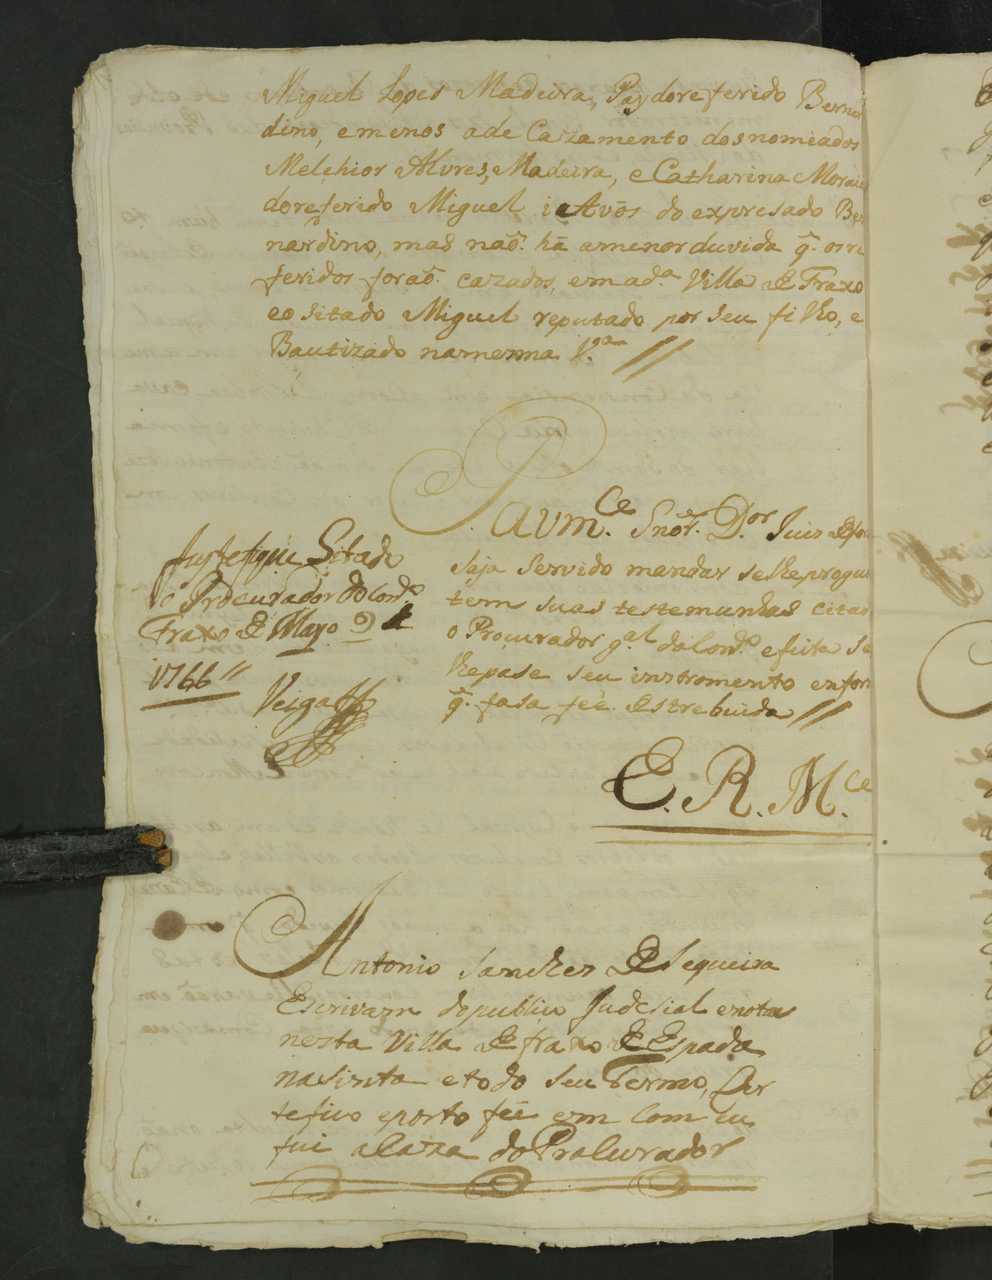 Miguel Lopes Madeira, Pay do referido Bernar
dino, e menos a de Cazamento dos nomeados
Melchior Alvres, Madeira, e Catharina Morais
do referido Miguel i Avós do expresado Ber
nardino, mas naõ. hã a menor duvida q̃. os re
feridos foraõ. cazados, em a d.ª Villa de Fraxo
e o sitado Miguel reputado por seu filho, e
Bautizado na mesma V.ª //
P. a vm.ce Snor. D.or Juis de for
Seja Servido mandar se lhe progun
tem suas testemunhas citad
o Procurador g.al da Com.de e feita se
lhe pase seu instromento en for
q̃. fasa feé. Destrebuida //
E. R. M.ce
Justefique Sitado
o Procurador do Con.do
Fraxo de Mayo 24
1766 //
Veiga
Antonio Sanches de Sequeira
Escrivam do publico Judesial e notas
nesta Villa de fraxo de Espada
na Sinta e todo seu Termo, Cer
tefico e porto feé em Com eu
fui a Caza do Procurador